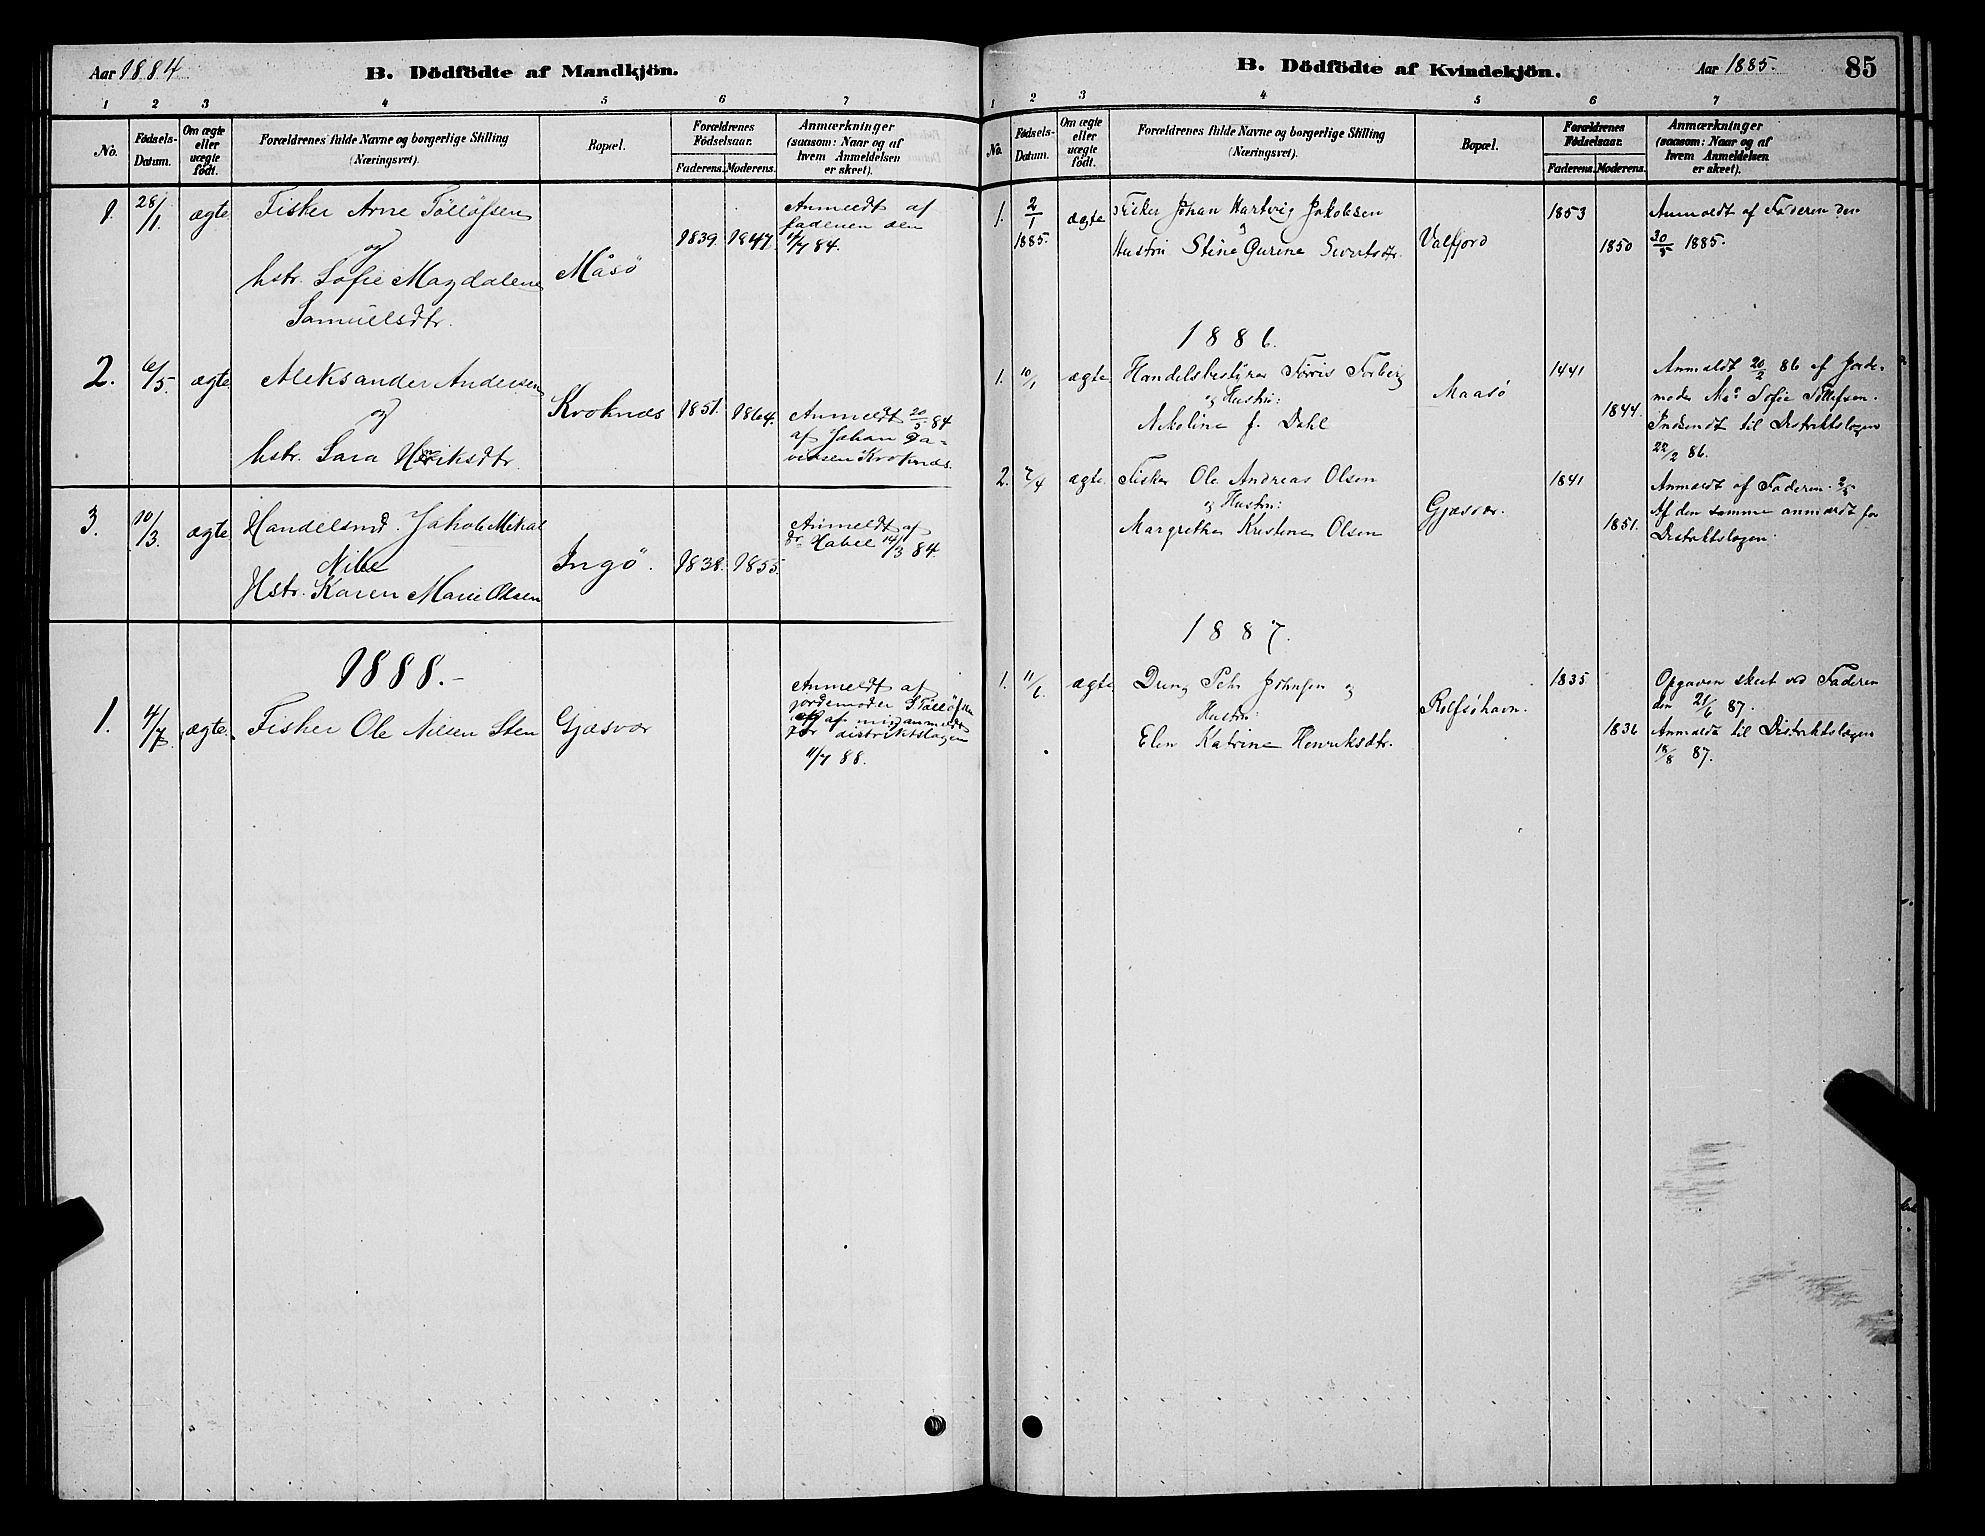 Aar 1884
B. Dödfödte af Mandkjön.
1 2 3 4 5 6 7
No. Födsels-Datum. Om ægte eller uægte födt. Forældrenes fulde Navne og borgerlige Stilling (Næringsvei). Bopæl. Forældrenes Födselsaar. Faderens. Moderens. Anmærkninger (saasom: Naar og af hvem Anmeldelsen er skeet).
1. 28/1. ægte Fisker Arne Tölløfsen
og
hstr. Sofie Magdalene
Samuelsdtr.
Måsö
1839. 1847.
Anmeldt af
faderen den
84.
2. 6/5. ægte Aleksander Andersen
og
hstr. Sara Henriksdtr.
Kroknæs 1851. 1864.
Anmeldt 20/5 84
af Johan Da-
vidsen Kroknæs.
3. 10/3. ægte Handelsmd. Jakob Mikal
Hstr. Karen Marie Olsen
Ingö. 1838. 1855.
Anmeldt af
Habel 14/3 84.
1888.-
1. 4/7 ægte. Fisker Ole Nilsen Sten Gjæsvær
Anmeldt af
jordemoder S Tollöfsen
af mig anmeldt
for distriktslægen
11/7 88.
B. Dödfödte af Kvindekjön.
Aar 1885.
85
1 2 3 4 5 6 7
No. Födsels-Datum. Om ægte eller uægte födt. Forældrenes fulde Navne og borgerlige Stilling (Næringsvei). Bopæl. Forældrenes Födselsaar. Faderens. Moderens. Anmærkninger (saasom: Naar og af hvem Anmeldelsen er skeet).
1. 2/1 1885. ægte Fisker Johan Hartvig Jakobsen
Hustru Stine Gurine Sivertsdtr.
Valfjord 1853 1850
Anmeldt af Faderen den
30/5 1885.
1886.
1. 10/1 ægte Handelsbestyrer Forberg
og Hustru:
Nikoline f. Dahl
Maasø 1441 1844.
Anmeldt 20/2 86 af Jorde-
moder Sofie Tollefsen.
Indsendt til Distriktslægen
22/2 86.
2. 7/4 ægte. Fisker Ole Andreas Olsen
og Hustru:
Margrethe Kristine Olsen
Gjæsvær. 1841 1851.
Anmeldt af Faderen 2/5
Af den samme anmeldt for
Distriktslægen.
1887.
1. 11/6. ægte Pehr Johnsen og
Hustru:
Elen Katrine Henriksdtr.
Rolfsøhavn. 1835 1836
Opgaven skeet ved Faderen
den 21/6 87.
Anmeldt til Distriktslægen
18/8 87.